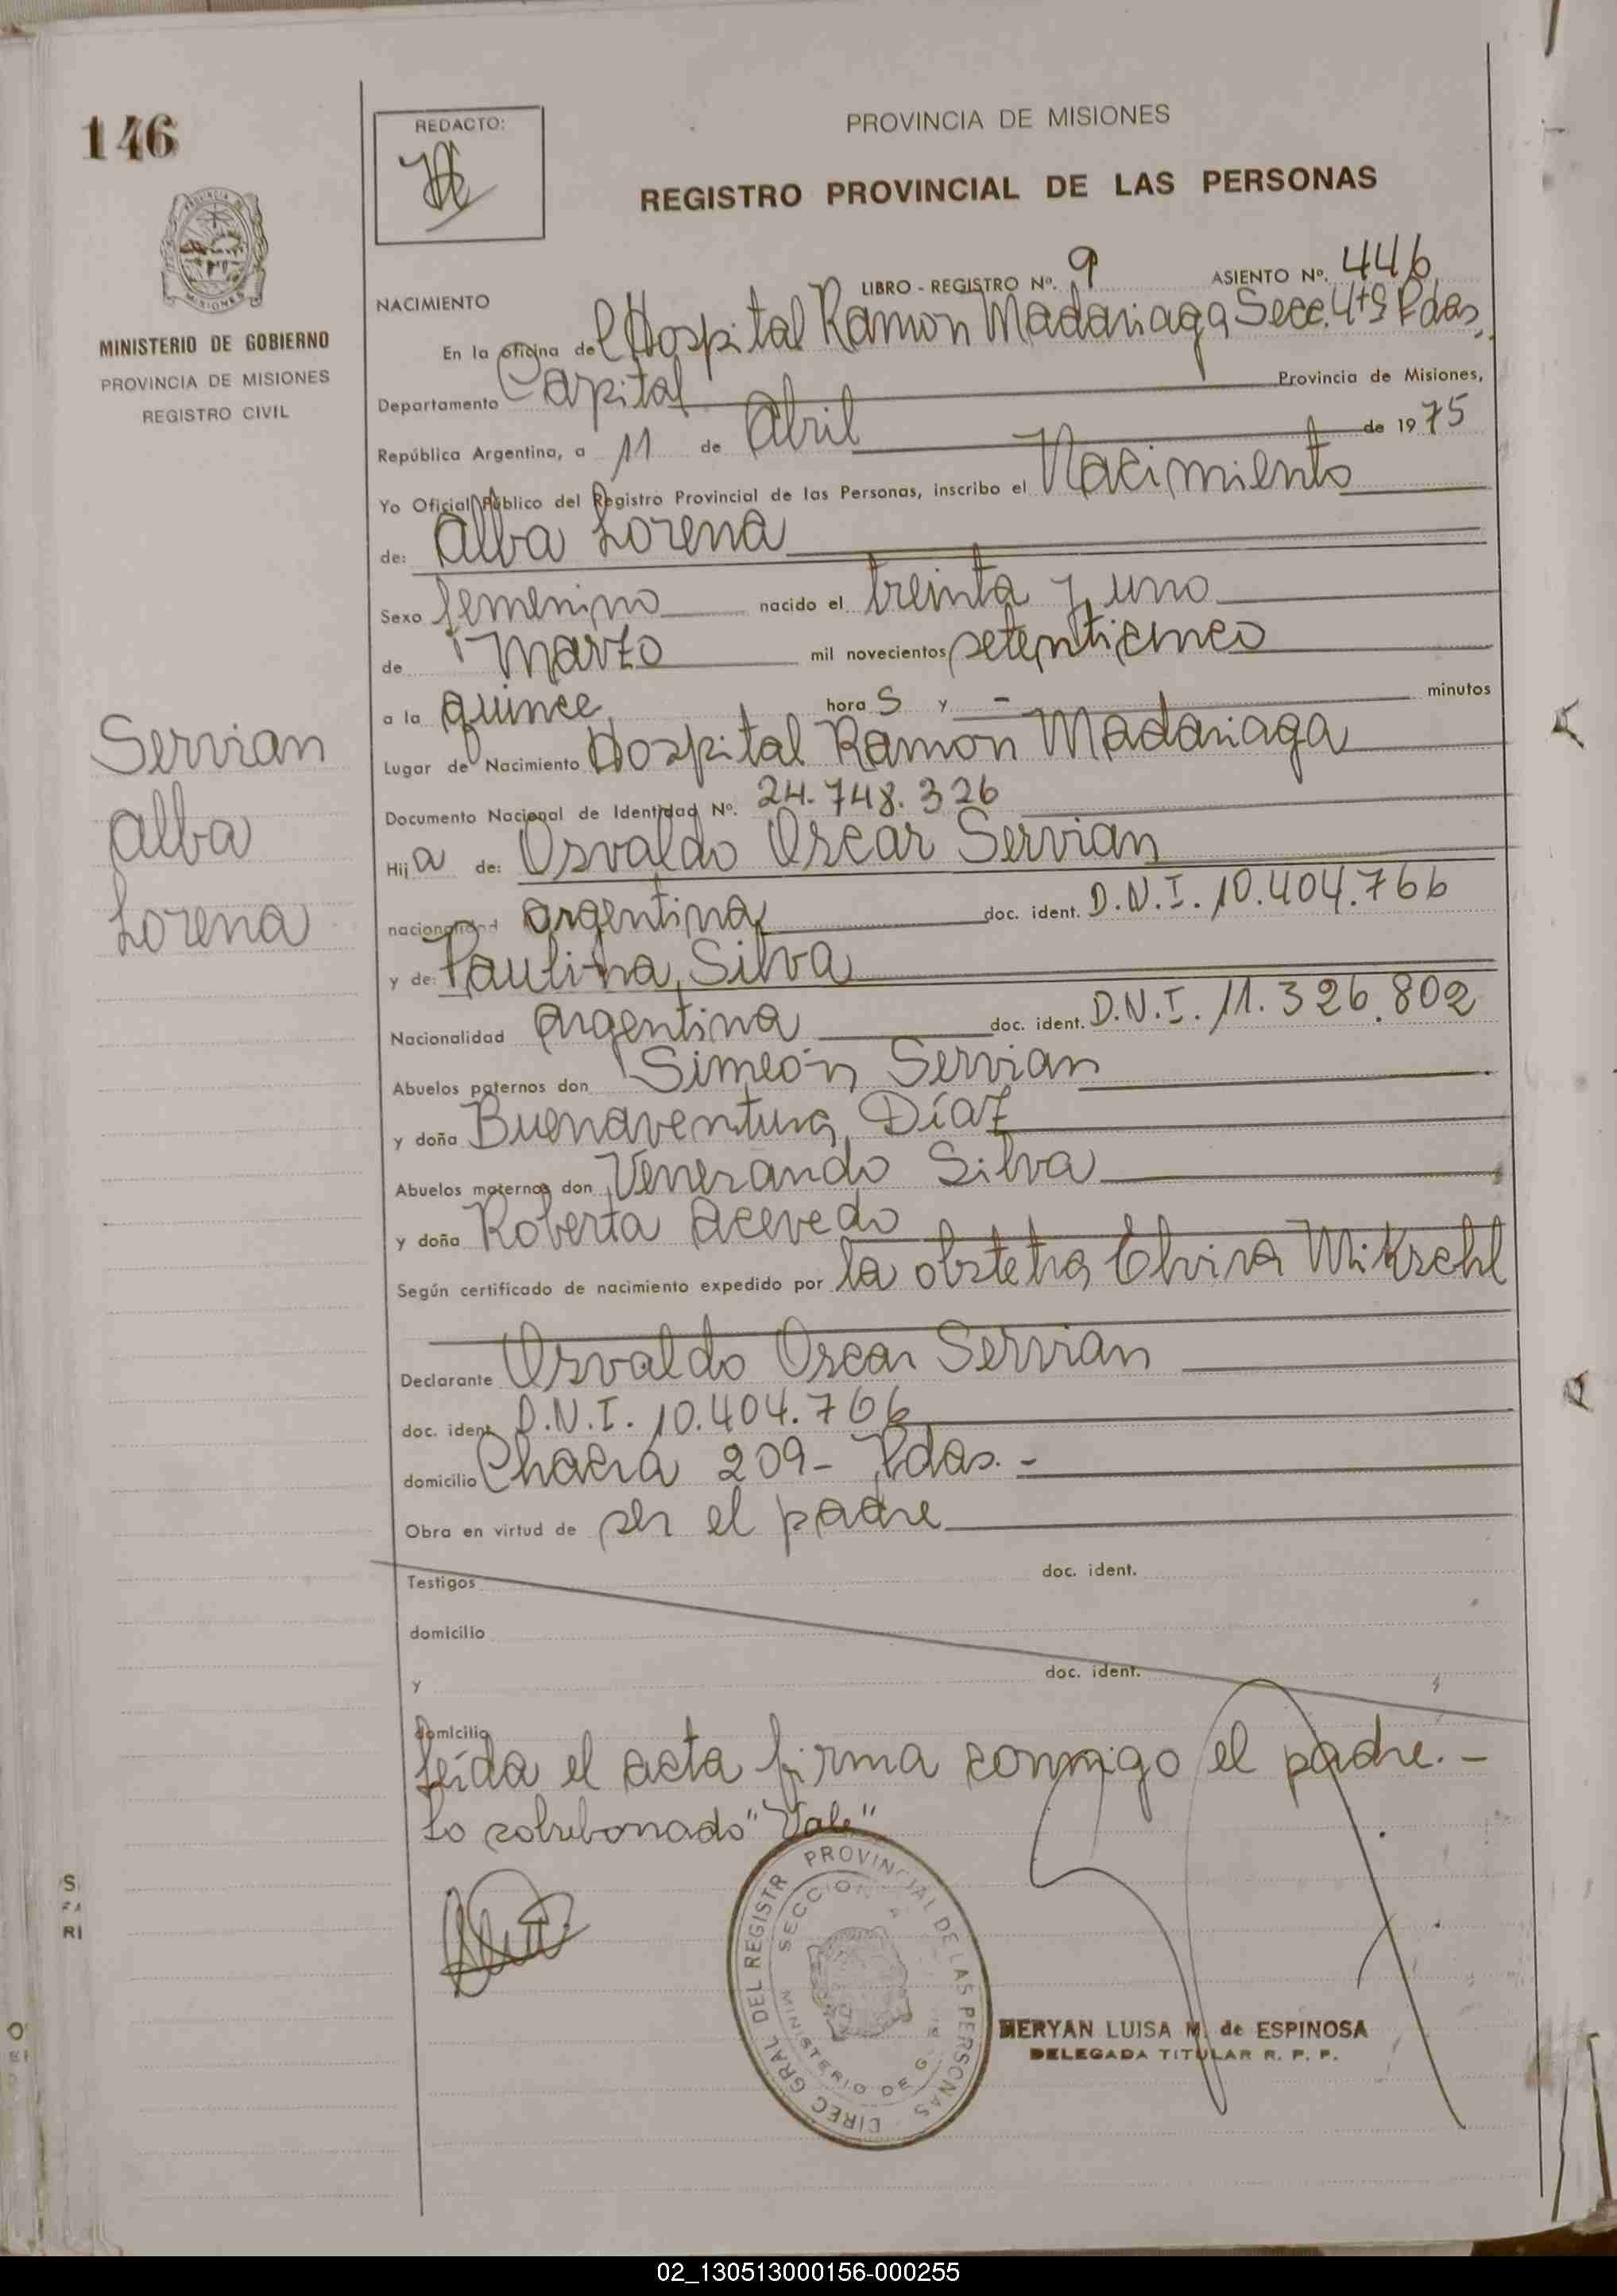 146
REDACTO:
PROVINCIA DE MISIONES
REGISTRO PROVINCIAL DE LAS PERSONAS
PROVINCIA DE
MISIONES
MINISTERIO DE GOBIERNO
PROVINCIA DE MISIONES
REGISTRO CIVIL
Servian
Alba
Lorena
NACIMIENTO
LIBRO - REGISTRO Nº. 9 ASIENTO Nº. 446
En la oficina del Hospital Ramon Madariaga Secc. 4tª Pdas.
Departamento Capital Provincia de Misiones,
República Argentina, a 11 de Abril de 1975
Yo Oficial Público del Registro Provincial de las Personas, inscribo el Nacimiento
de: Alba Lorena
Sexo femenino nacido el treinta y uno
de marzo mil novecientos setenticinco
a la quince hora s y - minutos
Lugar de Nacimiento Hospital Ramon Madariaga
Documento Nacional de Identidad Nº. 24.748.326
Hij a de: Osvaldo Oscar Servian
nacionalidad argentina doc. ident. D.N.I. 10.404.766
y de: Paulina Silva
Nacionalidad argentina doc. ident. D.N.I. 11.326.802
Abuelos paternos don Simeón Servian
y doña Buenaventura Díaz
Abuelos maternos don Venerando Silva
y doña Roberta Acevedo
Según certificado de nacimiento expedido por la obstetra Elvira Mikschl
Declarante Osvaldo Oscar Servian
doc. ident. D.N.I. 10.404.766
domicilio Chacra 209- Pdas. -
Obra en virtud de ser el padre
Testigos doc. ident.
domicilio
y doc. ident.
domicilio
Leída el acta firma conmigo el padre. -
Lo sobreborrado "Vale"
DIREC GRAL DEL REGISTR PROVINCIAL DE LAS PERSONAS
SECCION
MINISTERIO DE G
MERYAN LUISA M. de ESPINOSA
DELEGADA TITULAR R. P. P.
02_130513000156-000255